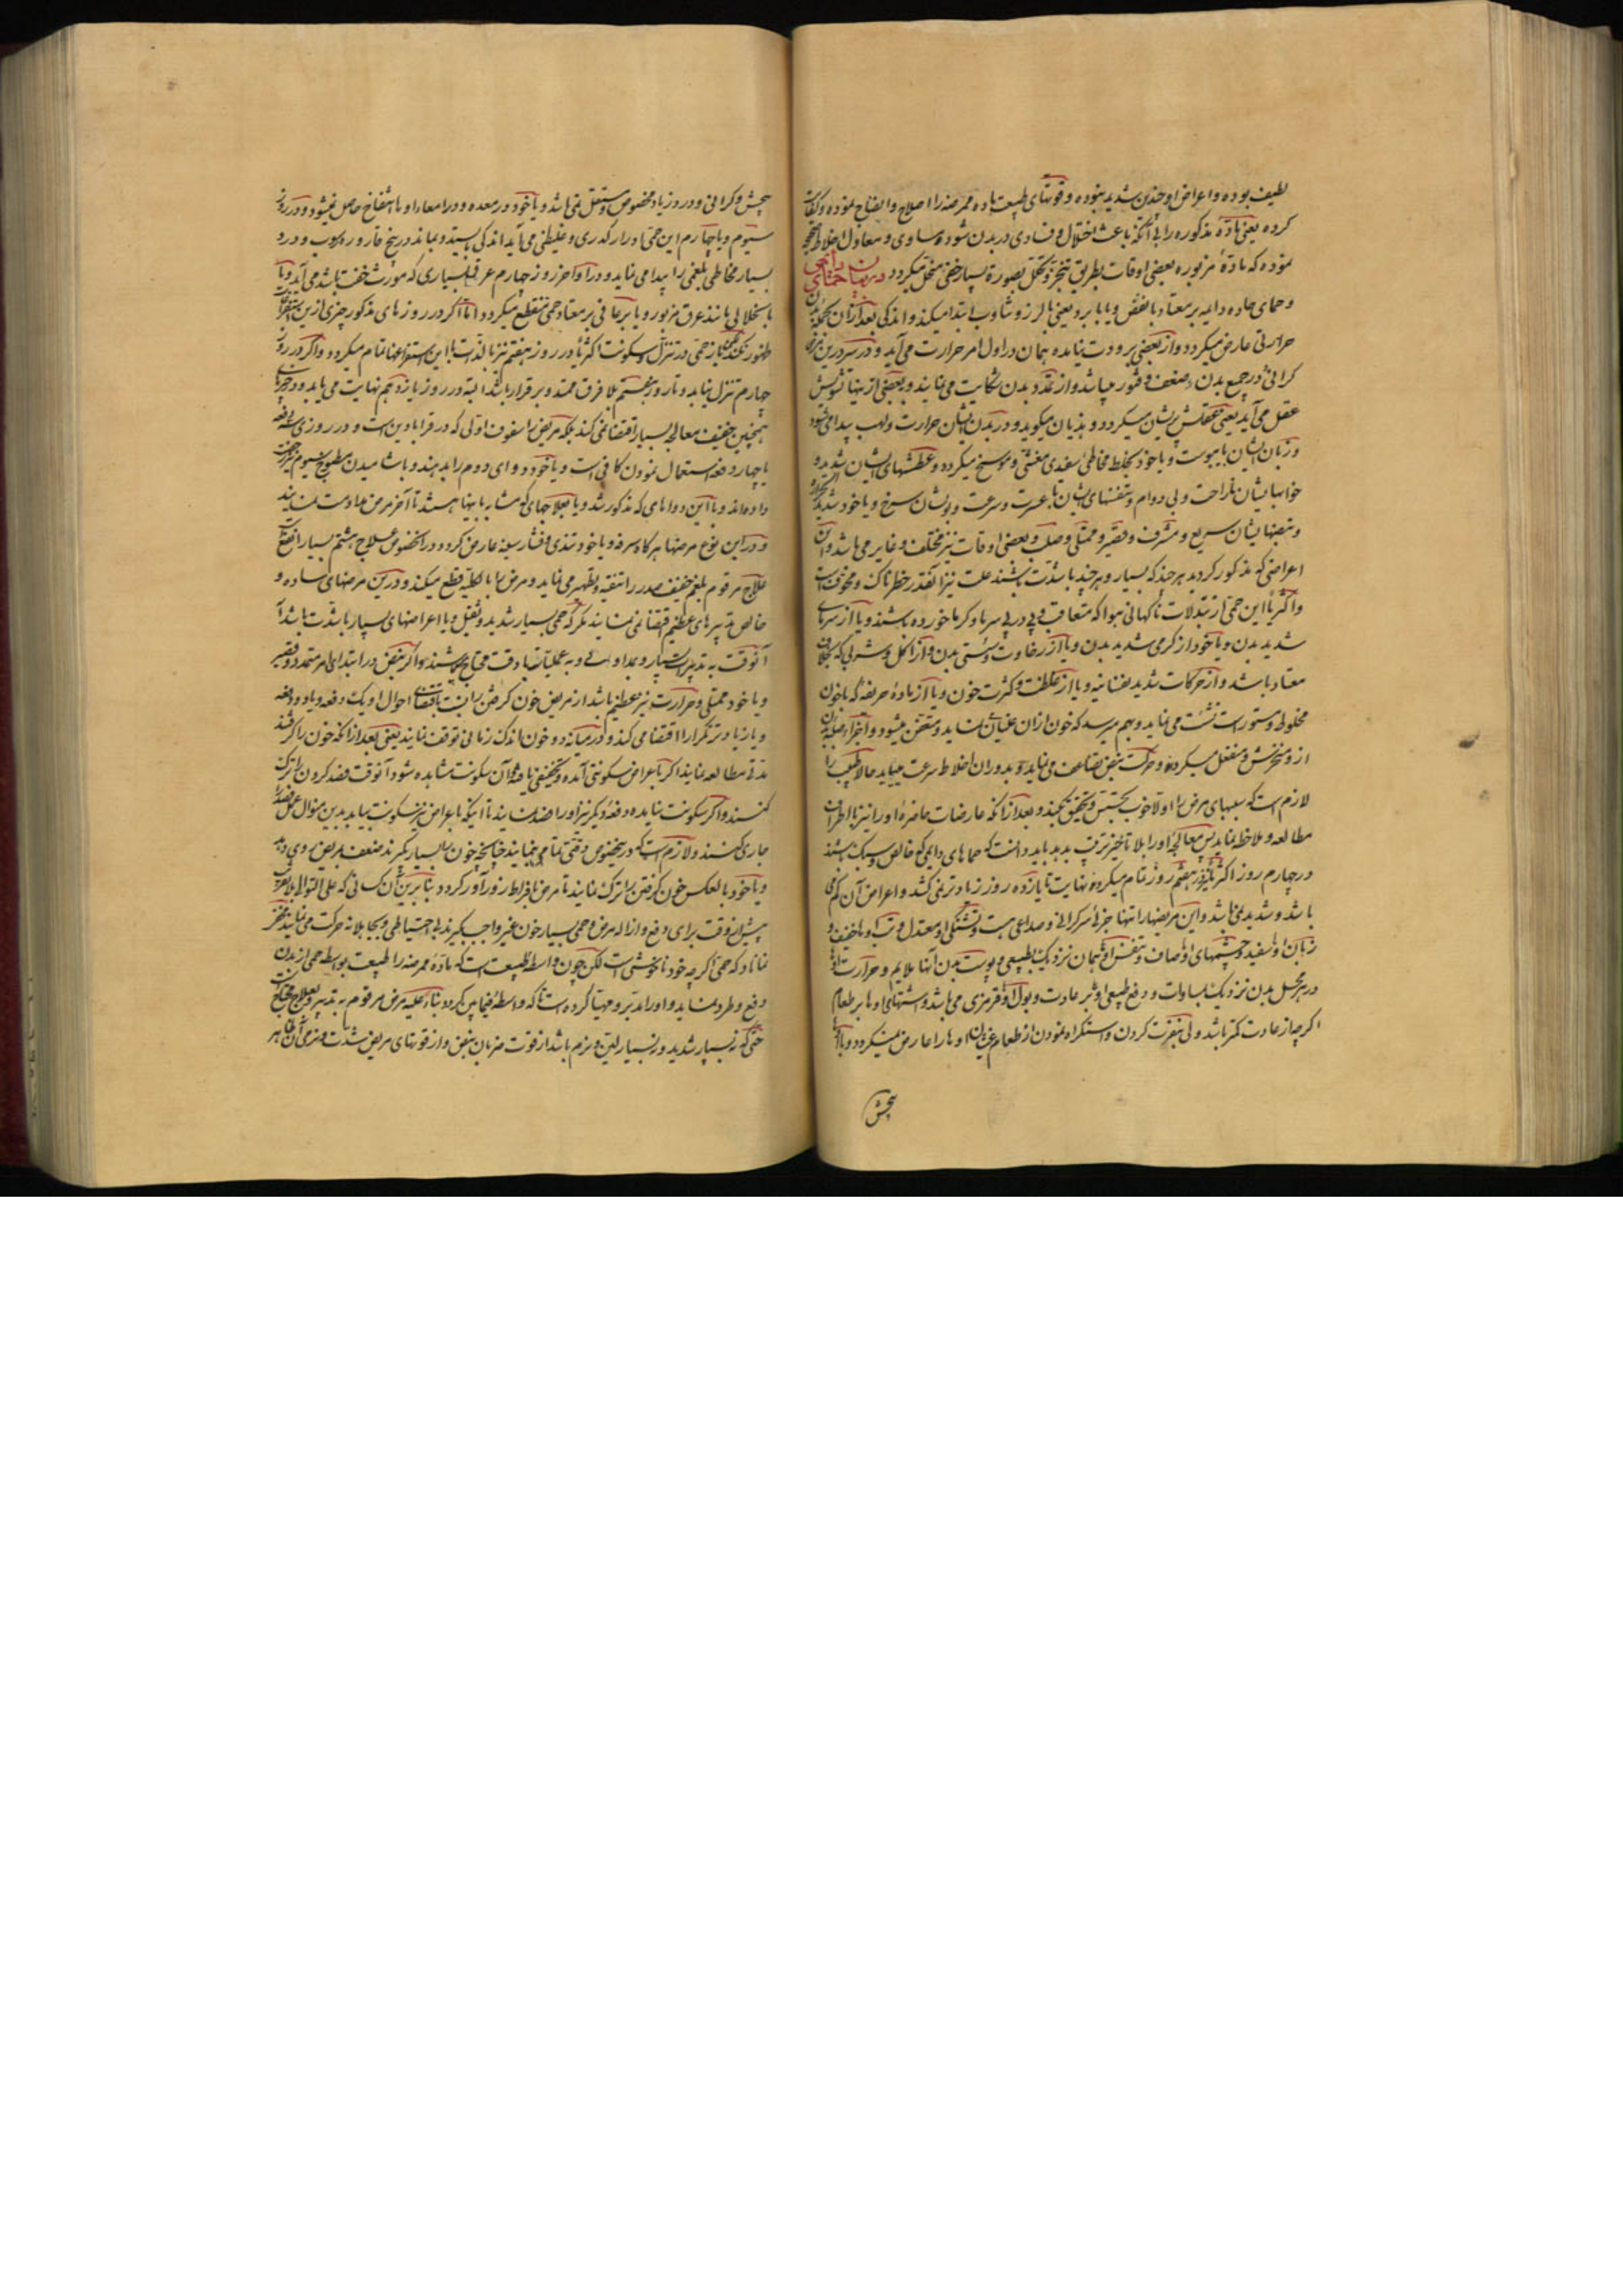 لطیف بوده و اعراض او چندین شدید نبوده و قوتهای طبیعت ماده ممرضه را اصلاح و انضاج نموده و
کرده یعنی مادهٔ مذکوره را بی آنکه باعث اختلال و فسادی در بدن شود مساوی و معادل اخلاط
نموده که مادهٔ مزبوره بعضی اوقات بطریق تبخر و تحلل بصورة بسیار خفی منحل میکردد در بیان حمای دایمی
و حمای حاده دایمه بر معتاد با نفض و یا با برد یعنی با لرز و تثاوب ابتدا میکند و اندکی بعد از آن
حرارتی عارض میکردد و از بعضی برودت نیامده همان در اول امر حرارت می آید و در سر
کرانی و در جمیع بدن ضعف و فتور میباشد و از تمدد بدن شکایت می نمایند و بعضی از اینها تشویش
عقل می آید یعنی عقلش پریشان میکردد و هذیان میکوید و در بدن ایشان حرارت و لهب پیدا می شود
و زبان ایشان با یبوست و یا خود بخلط مخاطی سفیدی مغشی و موسخ میکردد و عطشهای ایشان شدید و
خوابهایشان ناراحت و بی دوام و تنفسهای ایشان با عسرت و سرعت و بولشان سرخ و یا خود شدید
و نبضهایشان سریع و مشرف و فقیر و ممتلی و صلب و بعضی اوقات نیز مختلف و غایر می باشد و آن
اعراضی که مذکور کردید هر چند که بسیار و هر چند با شدت باشند علت نیز آنقدر خطرناک و مخوف است
و اکثریا این حمی از تبدلات ناکهانی هوا که متعاقب و پی در پی سرما و کرما خورده باشند و یا از سرمای
شدید بدن و یا خود از کرمی شدید بدن و یا از رخاوت و سستی بدن و از اکل و شربی که بخلاف
معتاد باشد و از حرکات شدید نفسانیه و یا از غلظت و کثرت خون و یا از مادهٔ حریفه که با خون
مخلوط و مستور است نشئت می نماید و بهم میرسد که خون از آن غلیان نماید و متعفن میشود و اجزاء صلبه بدن
از و متخرش و منفعل میکردد و حرکت نبض تضاعف می نماید و بدوران اخلاط سرعت میباید حالا طبیب را
لازم است که سببهای مرض را اولا خوب تجسس و تحقیق بکند و بعد از آنکه عارضات حاضرهٔ او را نیز با اطراف
مطالعه و ملاحظه نماید پس معالجهٔ او را بلا تاخیر ترتیب بدهد باید دانست که حماهای دایمی که خالص و سبک باشند
در چهارم روز اکثریا در هفتم روز تمام میکردد نهایت تا یازده روز زیاد تر نمی کشد و اعراض آن کم می
باشد و شدید نمی باشد و این مریضها را تنها جزئی سرکرانی و صداعی هست و تشنکی او معتدل و تب او با خفیف و
زبان او سفید و چشمهای او صاف و تنفس او همان نزدیک بطبیعی و پوست بدن آنها ملایم و حرارت او
در هر محل بدن نزدیک بمساوات و دفع طبیعی او بر عادت و بول او قرمزی می باشد و اشتهای او ها بر طعام
اکرچه از عادت کمتر باشد ولی بنفرت کردن و استکراه نمودن از طعام غثیان او ها را عارض نمیکردد و یا
پیچش
پیچش و کرانی و درد زیاد مخصوص و مستقل نمی باشد و یا خود در معده و در امعاء او با انتفاخ حاصل نمیشود و در روز
سیوم و یا چهارم این حمی ادرار کدری و غلیظی می آید اندکی بایستد و بماند در بیخ قاروره رسوب و درد
بسیار مخاطی بلغمی را پیدا می نماید و در اواخر روز چهارم عرق بسیاری که مورث خفت باشد می آید و یا
باسهالی مانند عرق مزبور و یا برعافی بر معتاد حمی منقطع میکردد اما اکر در روزهای مذکور چیزی ازین استفراغات
ظهور نکند لکن باز حمی در تنزل و سکونت اکثریا در روز هفتم نیز بالذات با این استفراغها تمام میکردد و اکر در روز
چهارم تنزل نیابد و تا روز هشتم بلا فرق ممتد و برقرار باشد البته در روز یازدهم نهایت می یابد و
همچنین خفیف معالجهٔ بسیار اقتضا نمی کند بلکه مریض را سفوف اولی که در قرابادین است و در روزی سه دفعه
یا چهار دفعه استعمال نمودن کافی است و یا خود دوای دوم را بدهند و با شامیدن مطبوخ سیوم نیز
داده اند و با این دواهای که مذکور شد و یا بعلاجهای که مشابه باینها هستند تا آخر مرض مداومت نمایند
و در این نوع مرضها هر کاه سرفه و یا خود تندی و فشار سینه عارض کردد در آنخصوص علاج هشتم بسیار انفع است
علاج مرقوم بلغم خفیف صدر را تنقیه و تطهیر می نماید و مرض را بالکلیه قطع میکند و درین مرضهای ساده و
خالص تدبیرهای عظیم اقتضا نمی نمایند مکر که حمی بسیار شدید و ثقیل و یا اعراضهای بسیار با شدت باشد
آنوقت به تدبیرات بسیار و بمداوات و به عملیات با دقت محتاج میباشند و اکر نبض در ابتدای امر متمدد و فقیر
و یا خود ممتلی و حرارت نیز عظیم باشد از مریض خون کرفتن را به نسبت اقتضای احوال او یک دفعه و یا دو دفعه
و یا زیاد تر تکرار را اقتضا می کند و در میانه دو خون اندک زمانی توقف نمایند یعنی بعد از آنکه خون را کرفتند
مدتی مطالعه نمایند اکر باعراض سکونتی آمده و تخفیفی یافته و آن سکونت مشاهده شود آنوقت فصد کردن را ترک
کنند و اکر سکونت نیامده دفعهٔ دیکر نیز او را فصد نمایند تا اینکه باعراض نیز سکونت بیاید بدین منوال عمل فصد را
جاری کنند و لازم است که در خصوص دقتی تمام نمایند چنانچه خون را بسیار نکیرند ضعف بمریض روی دهد
و یا خود بالعکس خون کرفتن را ترک ننمایند تا مرض بافراط زورآور کردد بنابرین آن کسانی که علی التوالی بلا تعریف
پیش از وقت برای دفع و ازاله مرض و حمی بسیار خون غیر واجب بکیرند بی احتیاطی و بیجا بلانه حرکت می نمایند
نماناد که حمی اکرچه خود ناخوشی است لکن چون واسطهٔ طبیعت است که مادهٔ ممرضه را طبیعت بواسطه حمی از بدن
دفع و طرد مینماید و او را مدبر و مهیا کرده است تا که واسطهٔ فیمابین کردد بناء علیه مرض مرقوم به تدبیر و بعلاج محتاج است
حتی که نه بسیار شدید و نه بسیار لین و نرم باشد از قوت ضربان نبض و از قوتهای مریض شدت و نرمی آن ظاهر